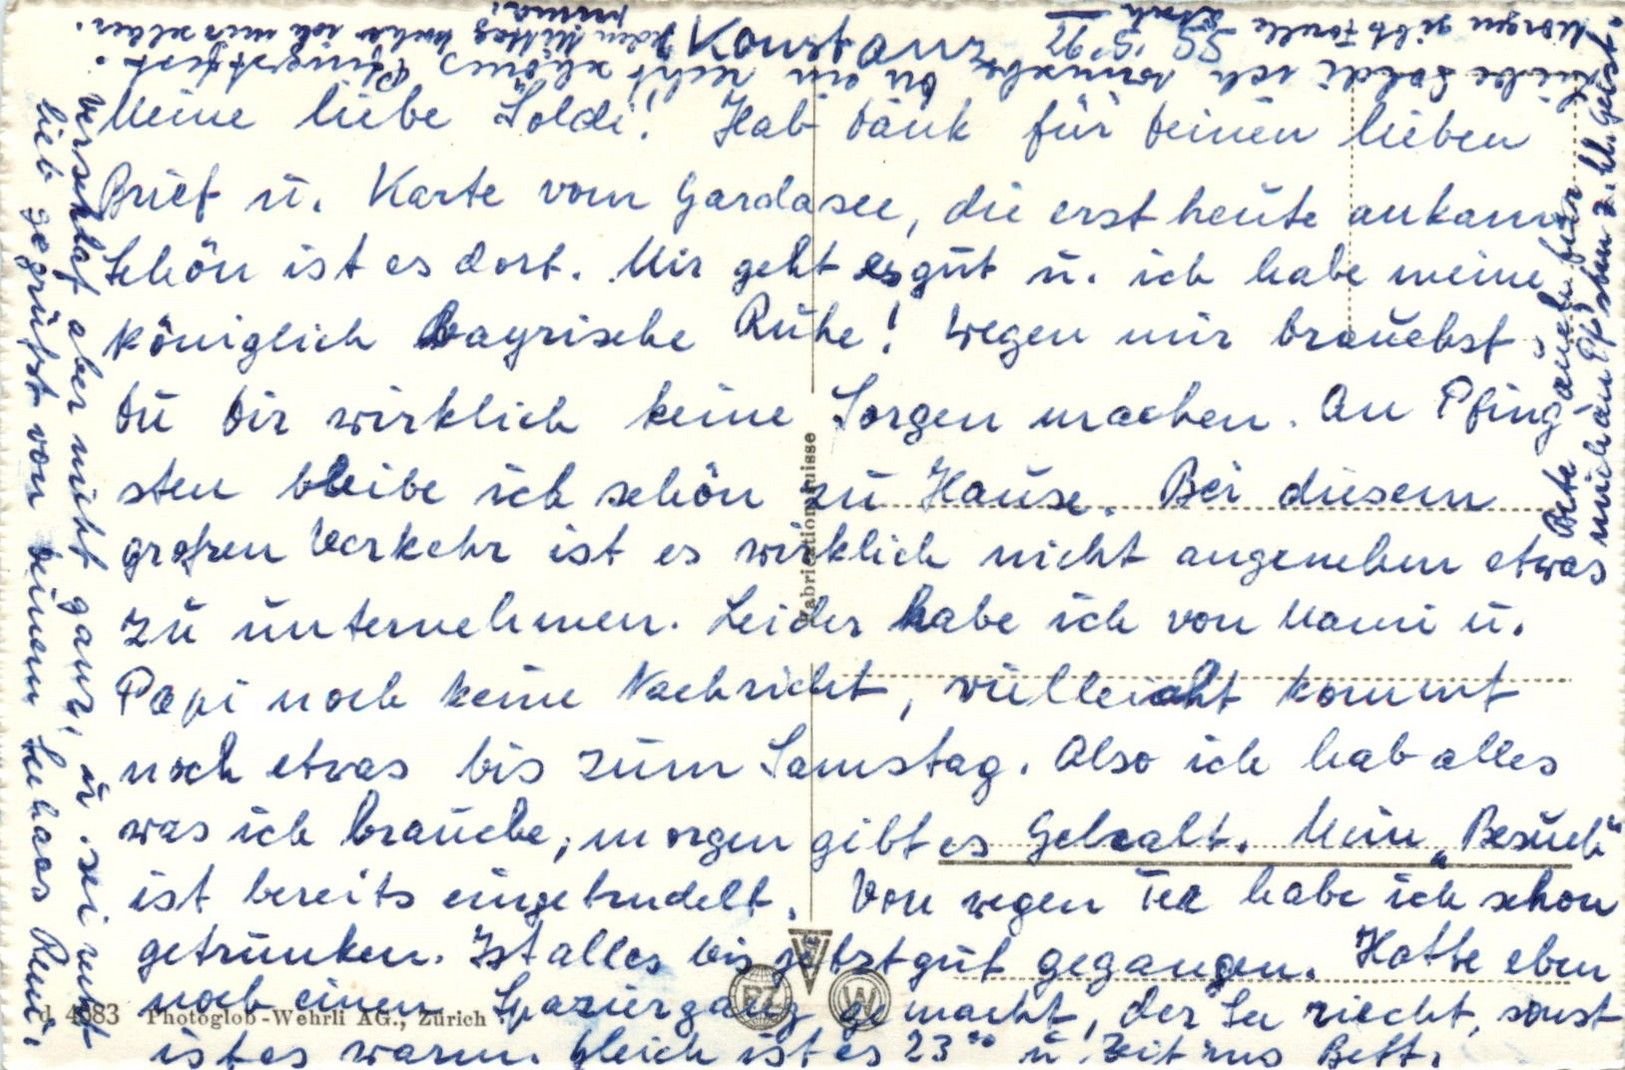 Konstanz
Meine liebe Loldi! Hab dank für deinen lieben
Brief u. Karte vom Gardasee, die erst heute ankam
Schön ist es dort. Mir geht es gut u. ich habe meine
königlich bayrische Ruhe! Wegen mir brauchst
du dir wirklich keine Sorgen machen. An Pfing
sten bleibe ich schön zu Hause. Bei diesem
großen Verkehr ist es wirklich nicht angenehm etwas
zu unternehmen. Leider habe ich von Mami u.
Papi noch keine Nachricht, vielleicht kommt
noch etwas bis zum Samstag. Also ich hab alles
was ich brauche, morgen gibt es Gehalt. Mein „Besuch"
ist bereits eingetrudelt. Von wegen Tee habe ich schon
getrunken. Ist alles bis jetzt gut gegangen. Hatte eben
noch einen Spaziergang gemacht, der See riecht, sonst
ist es warm. Gleich ist es 23°° u. Zeit ins Bett.
Verschlaf aber nicht ganz, u. sei mit
lieb gegrüßt von deinem
Liebe Loldi ich wünsche Du ein recht schönes Pfingstfest.
Morgen gibt Forelle
Jeden Mittag koche ich mir selber.
prima!
Bete auch für
mich an Pfi
Fabrication suisse
4083 Photoglob-Wehrli AG., Zürich
PZ
W